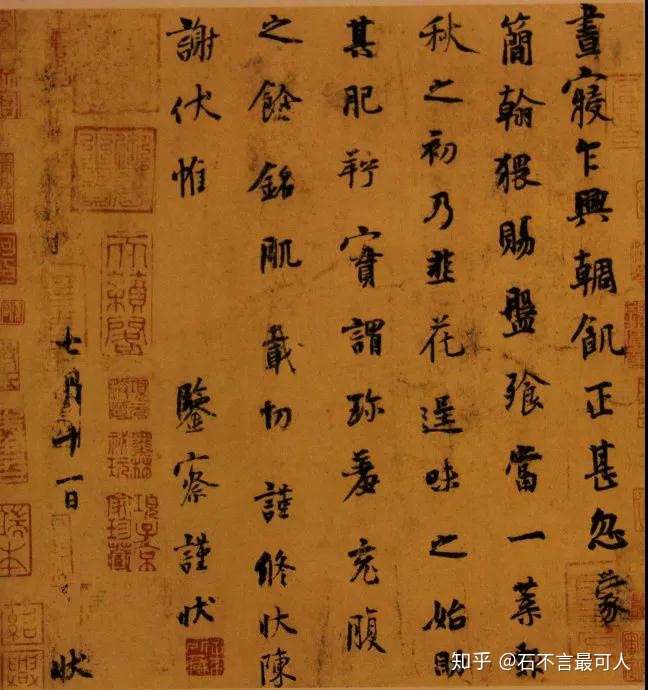 晝寢乍興輖飢正甚忽蒙
簡翰猥賜盤飧當一葉報
秋之初乃韭花逞味之始助
其肥羜實謂珍羞充腹
之餘銘肌載切謹修狀陳
謝伏惟 鑒察謹狀
七月十一日 狀
天籟閣
項子京家珍藏
墨林祕玩
知乎 @石不言最可人